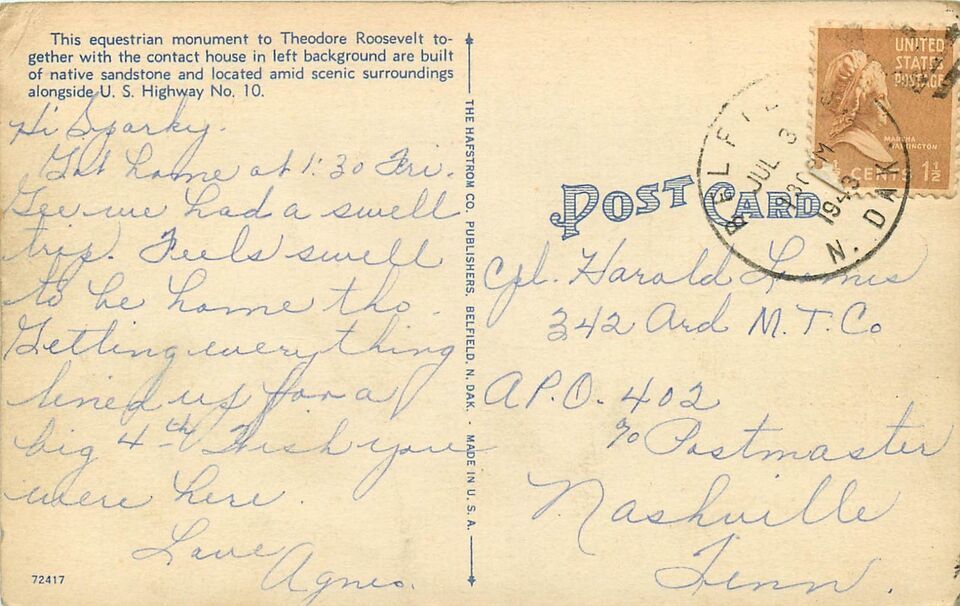 This equestrian monument to Theodore Roosevelt to-
gether with the contact house in left background are built
of native sandstone and located amid scenic surroundings
alongside U. S. Highway No. 10.
Hi Sparky.
Got home at 1:30 Fri.
Gee we had a swell
trip. Feels swell
to be home tho.
Getting everything
lined up for a
big 4th. Wish you
were here.
Love
Agnes.
72417
THE HAFSTROM CO. PUBLISHERS, BELFIELD, N. DAK. - MADE IN U. S. A.
POST CARD
UNITED
STATES
POSTAGE
MARTHA
WASHINGTON
CENTS 1½
JUL 3
130 PM
1943
N. DAK
Cpl. Harold
342 Ord M. T. Co
A.P.O. 402
c/o Postmaster
Nashville
Tenn.